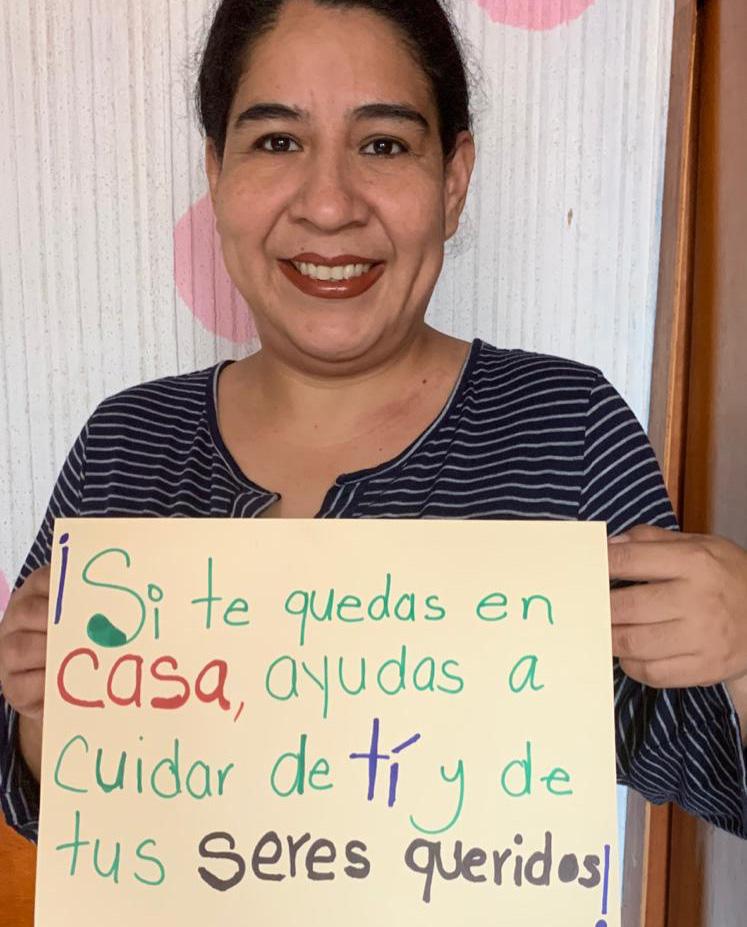 ¡Si te quedas en
casa, ayudas a
cuidar de tí y de
tus seres queridos!